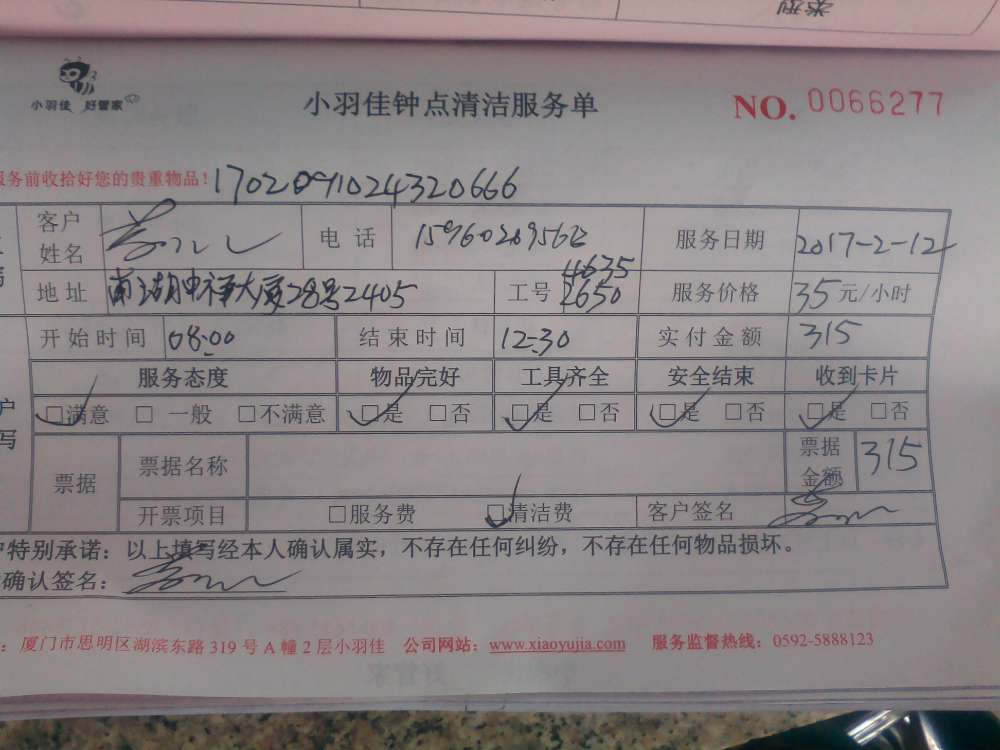 类型
小羽佳 好管家
小羽佳钟点清洁服务单
NO. 0066277
服务前收拾好您的贵重物品！1702091024320666
客户姓名 电话 服务日期 2017-2-12
地址 大厦28号2405 工号 4635 2650 服务价格 35元/小时
开始时间 08:00 结束时间 12:30 实付金额 315
服务态度 物品完好 工具齐全 安全结束 收到卡片
☑满意 □一般 □不满意 ☑是 □否 ☑是 □否 ☑是 □否 ☑是 □否
票据 票据名称 票据金额 315
开票项目 □服务费 ☑清洁费 客户签名
户特别承诺：以上填写经本人确认属实，不存在任何纠纷，不存在任何物品损坏。
确认签名：
：厦门市思明区湖滨东路319号A幢2层小羽佳 公司网站：www.xiaoyujia.com 服务监督热线：0592-5888123